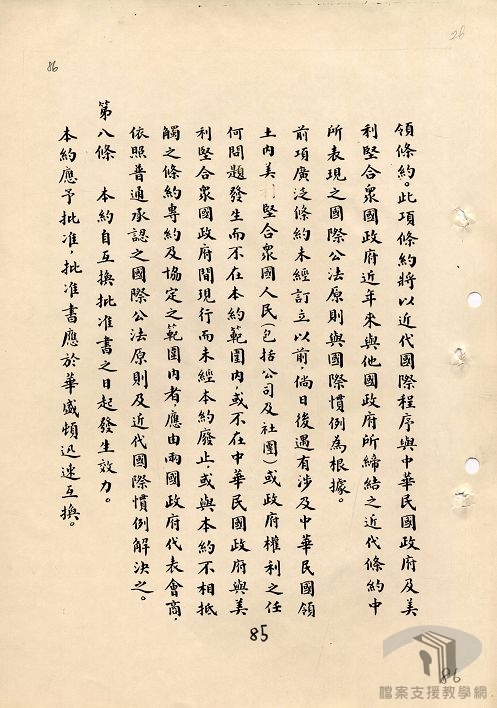 26
86
領條約。此項條約將以近代國際程序與中華民國政府及美
利堅合衆國政府近年來與他國政府所締結之近代條約中
所表現之國際公法原則與國際慣例為根據。
前項廣泛條約未經訂立以前,倘日後遇有涉及中華民國領
土內美利堅合衆國人民(包括公司及社團)或政府權利之任
何問題發生而不在本約範圍內,或不在中華民國政府與美
利堅合衆國政府間現行而未經本約廢止,或與本約不相抵
觸之條約專約及協定之範圍內者,應由兩國政府代表會商,
依照普通承認之國際公法原則及近代國際慣例解決之。
第八條 本約自互換批准書之日起發生效力。
本約應予批准,批准書應於華盛頓迅速互換。
85
86
檔案支援教學網